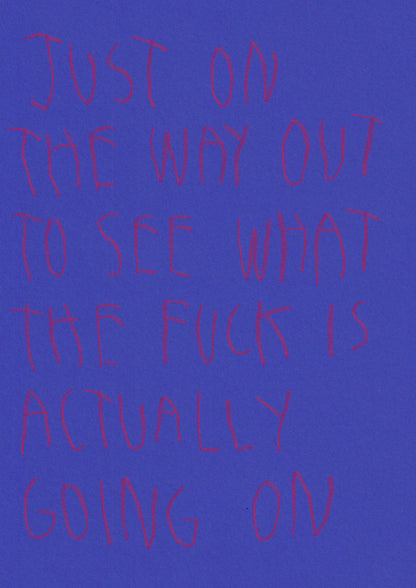 JUST ON
THE WAY OUT
TO SEE WHAT
THE FUCK IS
ACTUALLY
GOING ON